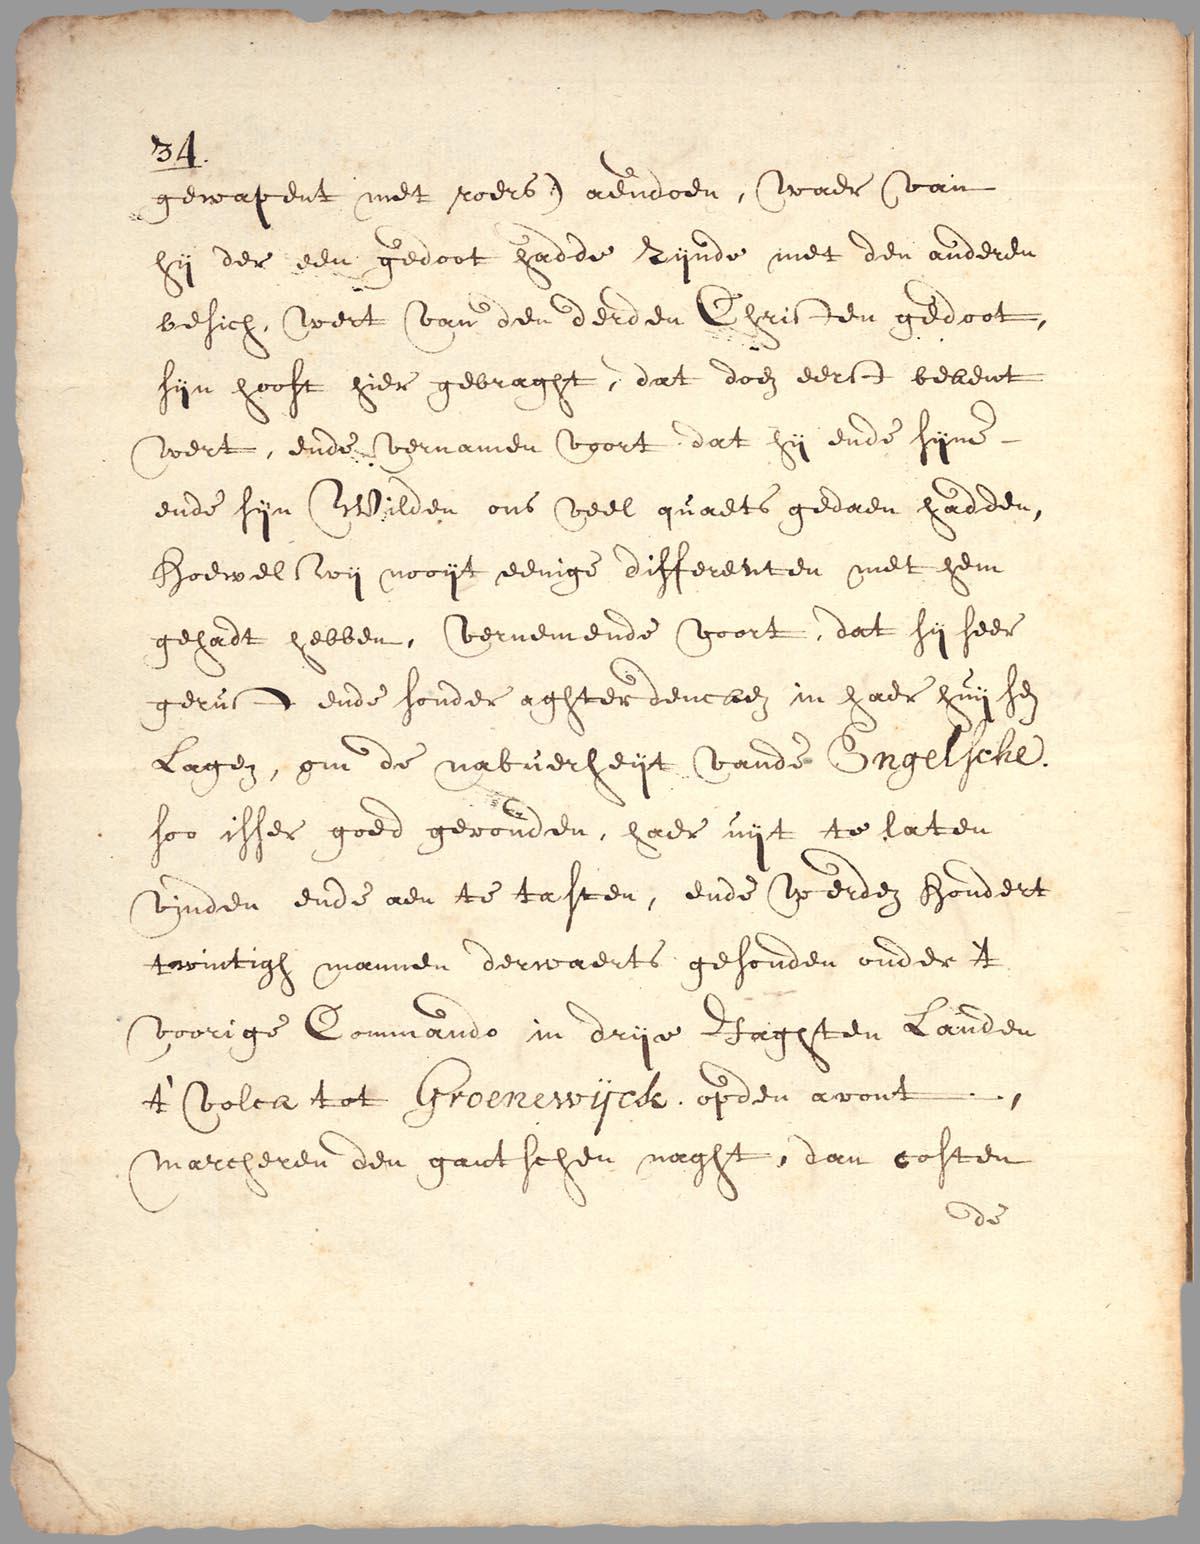 34.
gewapent met roers) aendoen, waer van
hij der een gedoot hadde zijnde met den anderen
besich, wert van den derden Christen gedoot,
sijn hooft hier gebraght, dat doen eerst bekent
wert, ende vernamen voort dat hij ende sijne
ende sijn Wilden ons veel quaets gedaen hadden,
Hoewel wij nooijt eenige differenten met hem
gehadt hebben, vernemende voort, dat sij seer
gerust ende sonder aghterdencken in haer huijsen
Lagen, om de nabuerheijt vande Engelsche.
soo isser goed gevonden, haer uijt te laten
vinden ende aen te tasten, ende werden Hondert
twintigh mannen derwaerts gesonden onder 't
voorige Commando in drije Jaghten Landen
t' volck tot Groenewijck opden avont,
marcheren den gantschen naght, dan costen
de